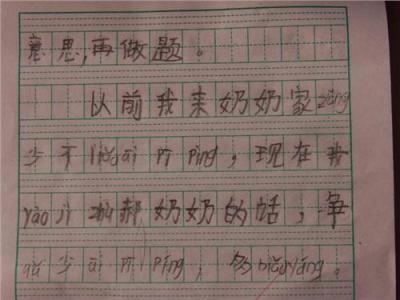 意思,再做题。
以前我来奶奶家zǒng
少不liǎoái pī píng,现在我
yào jì 郝奶奶的话,争
qǔ 少ái pī píng,多biǎoyáng。